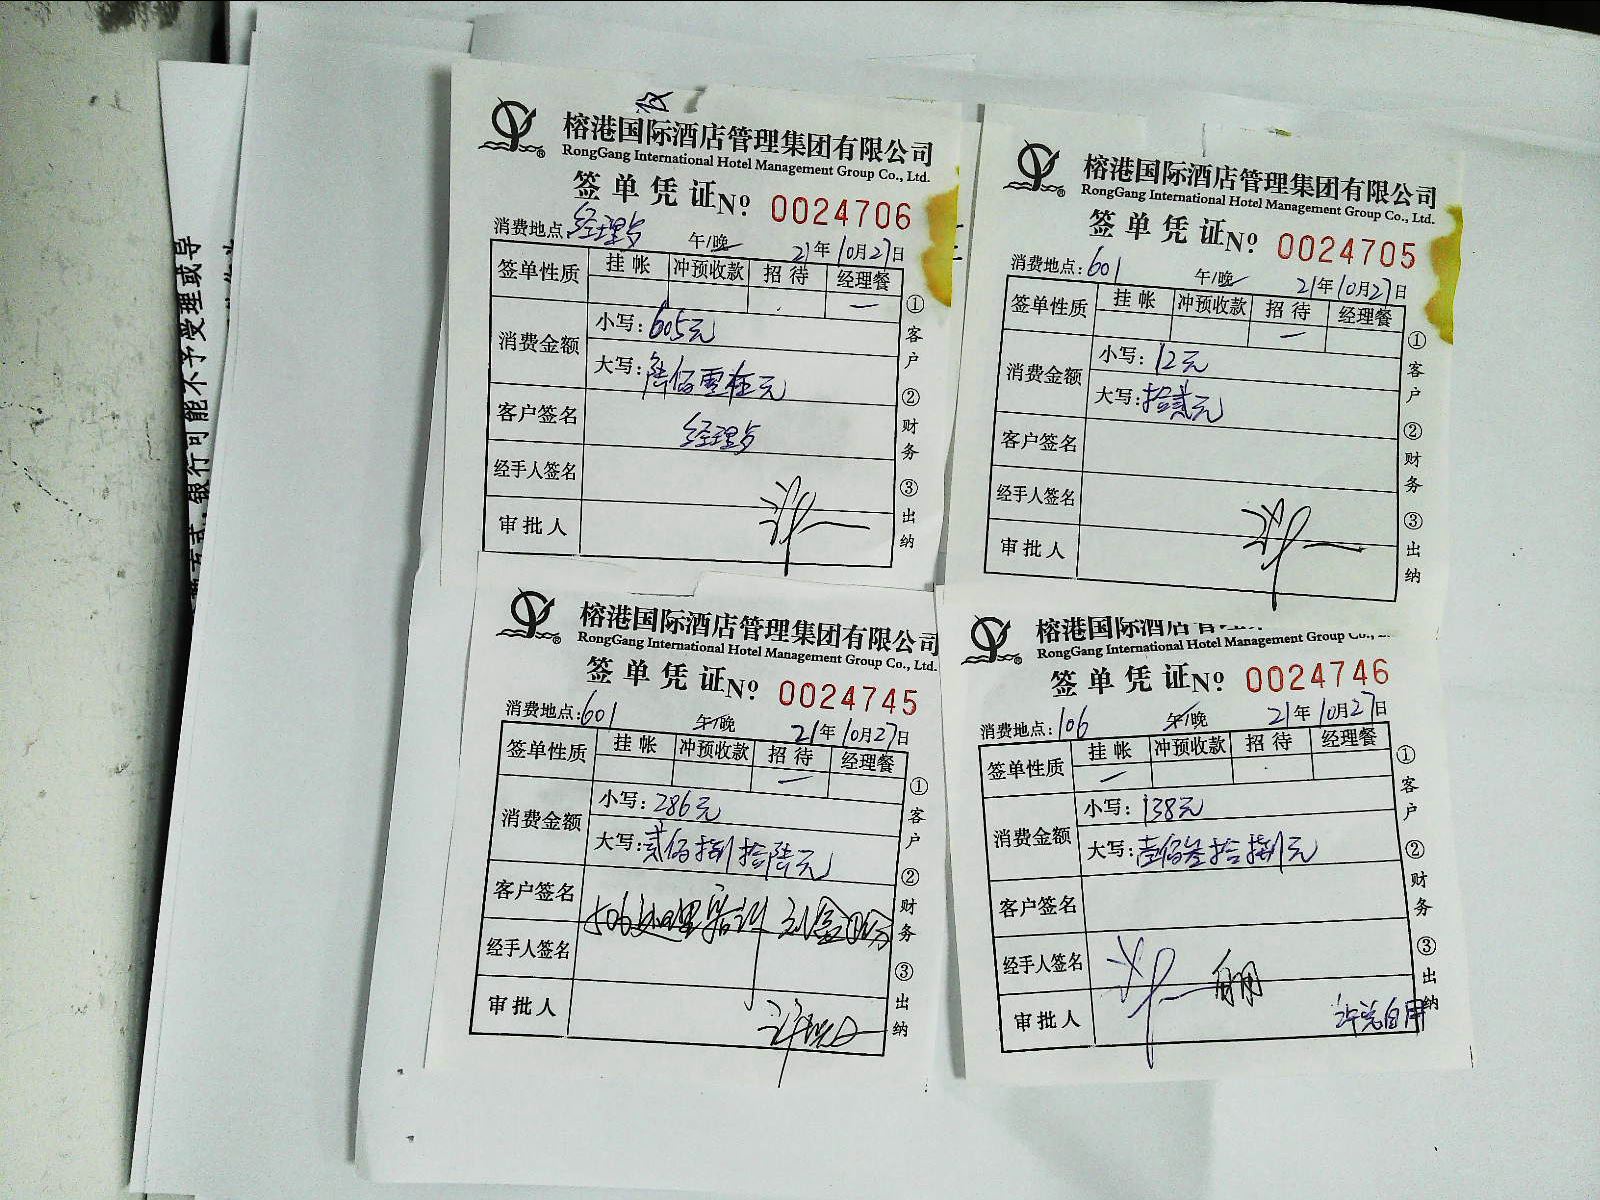 榕港国际酒店管理集团有限公司
RongGang International Hotel Management Group Co., Ltd.
签单凭证№ 0024706
消费地点:
午/晚 21年10月27日
签单性质 挂帐 冲预收款 招待 经理餐
消费金额 小写:605元
大写:陆佰零伍元
客户签名
经手人签名
审批人
①客户 ②财务 ③出纳
榕港国际酒店管理集团有限公司
RongGang International Hotel Management Group Co., Ltd.
签单凭证№ 0024705
消费地点:601 午/晚 21年10月27日
签单性质 挂帐 冲预收款 招待 经理餐
消费金额 小写:12元
大写:拾贰元
客户签名
经手人签名
审批人
①客户 ②财务 ③出纳
榕港国际酒店管理集团有限公司
RongGang International Hotel Management Group Co., Ltd.
签单凭证№ 0024745
消费地点:601 午/晚 21年10月27日
签单性质 挂帐 冲预收款 招待 经理餐
消费金额 小写:286元
大写:贰佰捌拾陆元
客户签名
经手人签名
审批人
①客户 ②财务 ③出纳
榕港国际酒店管
RongGang International Hotel Management Group Co.,
签单凭证№ 0024746
消费地点:106 午/晚 21年10月27日
签单性质 挂帐 冲预收款 招待 经理餐
消费金额 小写:138元
大写:壹佰叁拾捌元
客户签名
经手人签名
审批人
①客户 ②财务 ③出纳
银行可能不予受理或导